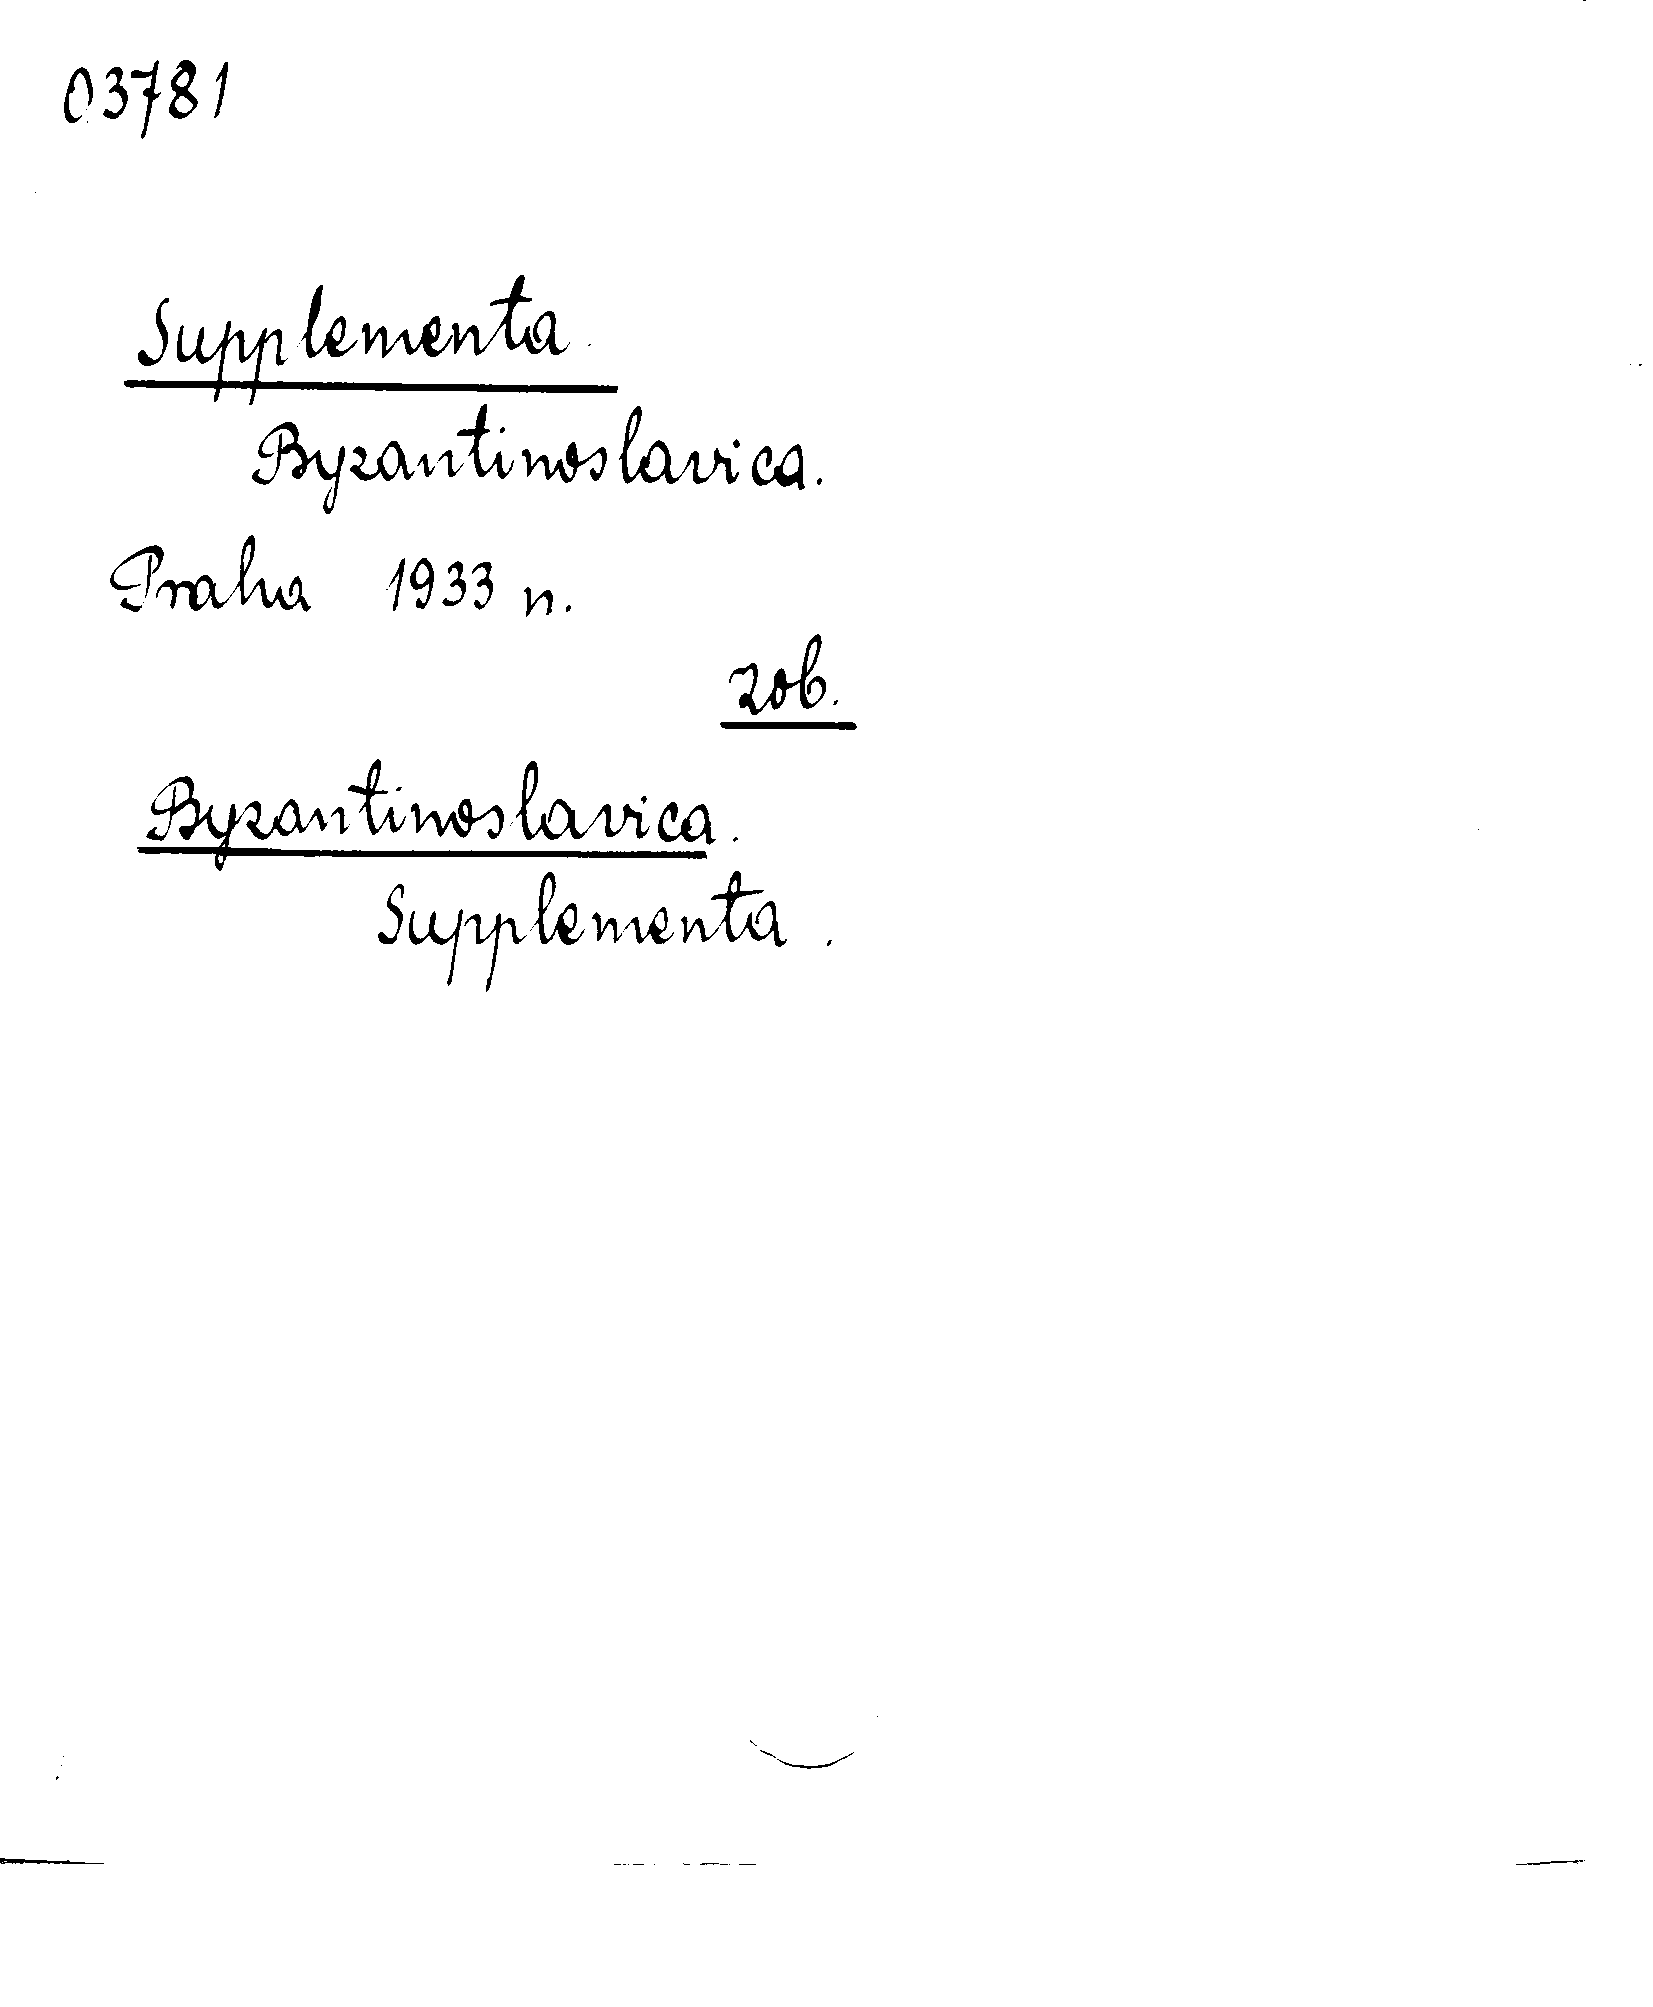 03781
Supplementa
Byzantinoslavica.
Praha 1933 n.
zob.
Byzantinoslavica.
Supplementa.